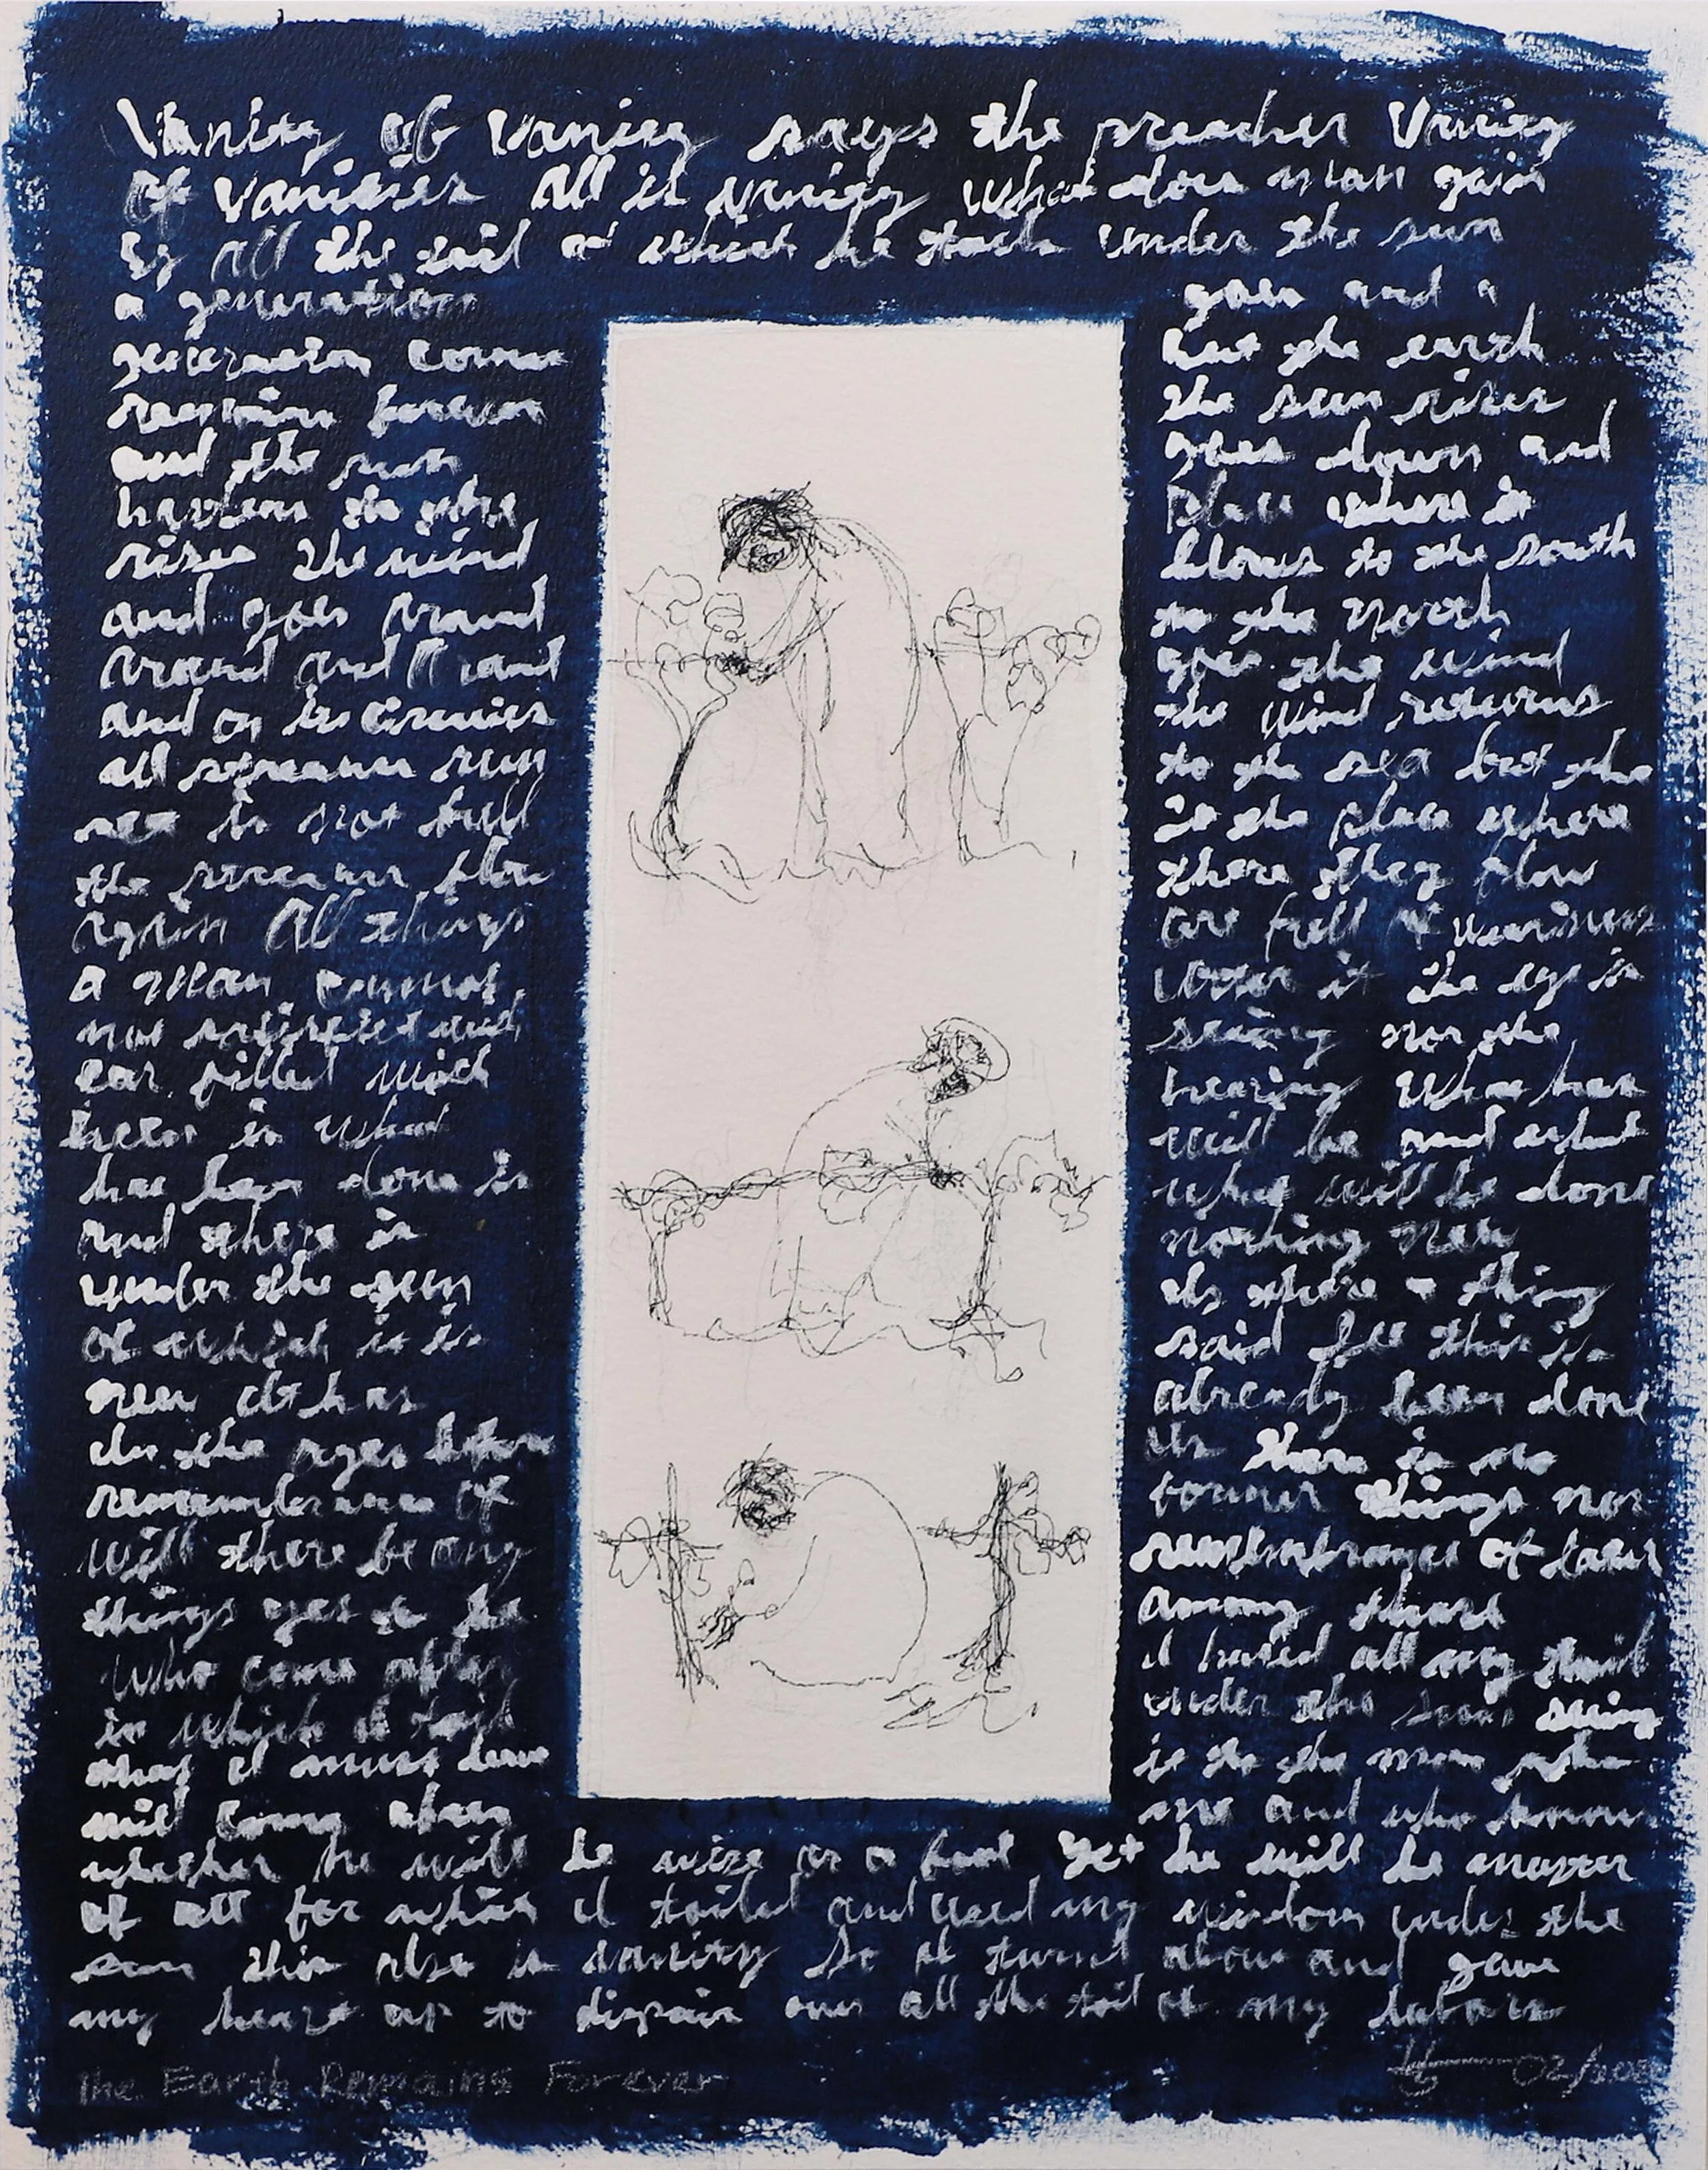 Vanity of Vanity says the preacher Vanity
Of Vanities All is Vanity What does man gain
by All the toil at which he toils under the sun
a generation goes and a
generation comes but the earth
remains forever the sun rises
and the sun goes down and
hastens to the place where it
rises The wind blows to the south
and goes round to the North
Around and Around goes the wind
and on its circuits the Wind returns
all streams run to the sea but the
sea is not full to the place where
the streams flow there they flow
Again All things are full of weariness
a man cannot utter it the eye is
not satisfied with seeing nor the
ear filled with hearing What has
been is what will be and what
has been done is what will be done
And there is nothing New
under the sun Is there a thing
of which it is said See this is
new It has already been done
In the ages before Us there is no
remembrance of former things nor
will there be any remembrance of later
things yet to be Among those
Who come after I hated all my toil
in which I toil under the sun seeing
that I must leave it to the man who
will come after me and who knows
whether he will be wise or a fool Yet he will be master
of all for which I toiled and used my wisdom under the
sun this also is vanity So I turned about and gave
my heart up to dispair over all the toil of my labors
The Earth Remains Forever